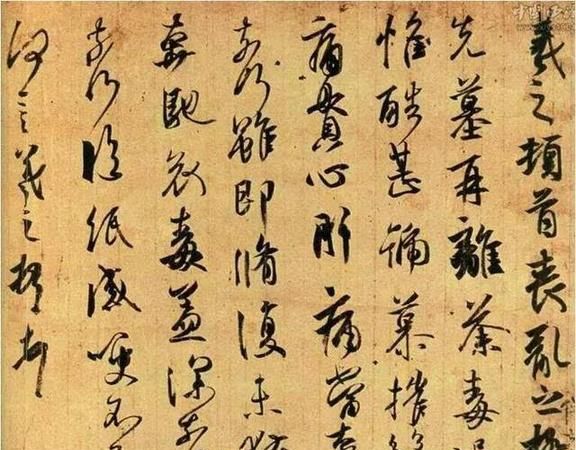 羲之頓首喪亂之極
先墓再離荼毒追
惟酷甚號慕摧絕
痛貫心肝痛當奈
奈何雖即脩復未
奔馳哀毒益深奈
奈何臨紙感哽不
何言羲之頓首